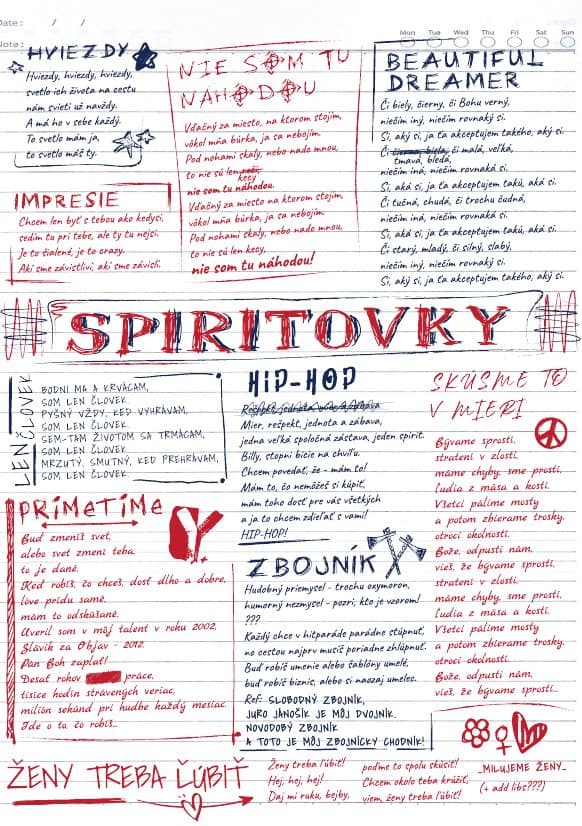 Date : / /
Note :
Mon Tue Wed Thu Fri Sat Sun
HVIEZDY
Hviezdy, hviezdy, hviezdy,
svetlo ich života na cestu
nám svieti už navždy.
A má ho v sebe každý.
To svetlo mám ja,
to svetlo máš ty.
IMPRESIE
Chcem len byť s tebou ako kedysi,
sedím tu pri tebe, ale ty tu nejsi.
Je to šialené, je to crazy.
Akí sme závistliví, akí sme závislí.
NIE SOM TU
NÁHODOU
Vďačný za miesto, na ktorom stojím,
vôkol mňa búrka, ja sa nebojím.
Pod nohami skaly, nebo nado mnou,
to nie sú len reči,
kecy
nie som tu náhodou.
Vďačný za miesto, na ktorom stojím,
vôkol mňa búrka, ja sa nebojím.
Pod nohami skaly, nebo nado mnou,
to nie sú len kecy,
nie som tu náhodou!
BEAUTIFUL
DREAMER
Či biely, čierny, či Bohu verný,
niečím iný, niečím rovnaký si.
Si, aký si, ja ťa akceptujem takého, aký si.
Či čierna, biela, či malá, veľká,
tmavá, bledá,
niečím iná, niečím rovnaká si.
Si, aká si, ja ťa akceptujem takú, aká si.
Či tučná, chudá, či trochu čudná,
niečím iná, niečím rovnaká si.
Si, aká si, ja ťa akceptujem takú, aká si.
Či starý, mladý, či silný, slabý,
niečím iný, niečím rovnaký si.
Si, aký si, ja ťa akceptujem takého, aký si.
SPIRITOVKY
LEN ČLOVEK
BODNI MA A KRVÁCAM,
SOM LEN ČLOVEK.
PYŠNÝ VŽDY, KEĎ VYHRÁVAM,
SOM LEN ČLOVEK.
SEM-TAM ŽIVOTOM SA TRMÁCAM,
SOM LEN ČLOVEK.
MRZUTÝ, SMUTNÝ, KEĎ PREHRÁVAM,
SOM LEN ČLOVEK.
PRÍMETÍME
Buď zmeníš svet,
alebo svet zmení teba,
to je dané.
Keď robíš, čo chceš, dosť dlho a dobre,
love prídu samé,
mám to odskúšané.
Uveril som v môj talent v roku 2002,
Slávik za Objav - 2012.
Pán Boh zaplať!
Desať rokov práce,
tisíce hodín strávených veriac,
milión sekúnd pri hudbe každý mesiac.
Ide o to, čo robíš...
HIP-HOP
Mier, rešpekt, jednota a zábava,
jedna veľká spoločná zástava, jeden spirit.
Billy, stopni bicie na chvíľu.
Chcem povedať, že - mám to!
Mám to, čo nemôžeš si kúpiť,
mám toho dosť pre vás všetkých
a ja to chcem zdieľať s vami!
HIP-HOP!
ZBOJNÍK
Hudobný priemysel - trochu oxymoron,
humorný nezmysel - pozri, kto je vzorom!
???
Každý chce v hitparáde parádne stúpnuť,
no cestou najprv musíš poriadne zhlúpnuť.
Buď robíš umenie alebo šablóny umelé,
buď robíš biznis, alebo si naozaj umelec.
Ref: SLOBODNÝ ZBOJNÍK,
JURO JÁNOŠÍK JE MÔJ DVOJNÍK.
NOVODOBÝ ZBOJNÍK
A TOTO JE MÔJ ZBOJNÍCKY CHODNÍK!
SKÚSME TO
V MIERI
Bývame sprostí,
stratení v zlosti,
máme chyby, sme prostí,
ľudia z mäsa a kostí.
Všetci pálime mosty
a potom zbierame trosky,
otroci okolností.
Bože, odpusti nám,
vieš, že bývame sprostí,
stratení v zlosti,
máme chyby, sme prostí,
ľudia z mäsa a kostí.
Všetci pálime mosty
a potom zbierame trosky,
otroci okolností.
Bože, odpusti nám,
vieš, že bývame sprostí...
ŽENY TREBA ĽÚBIŤ
Ženy treba ľúbiť!
Hej, hej, hej!
Daj mi ruku, bejby,
poďme to spolu skúsiť!
Chcem okolo teba krúžiť,
viem, ženy treba ľúbiť!
_MILUJEME ŽENY_
(+ add libs???)